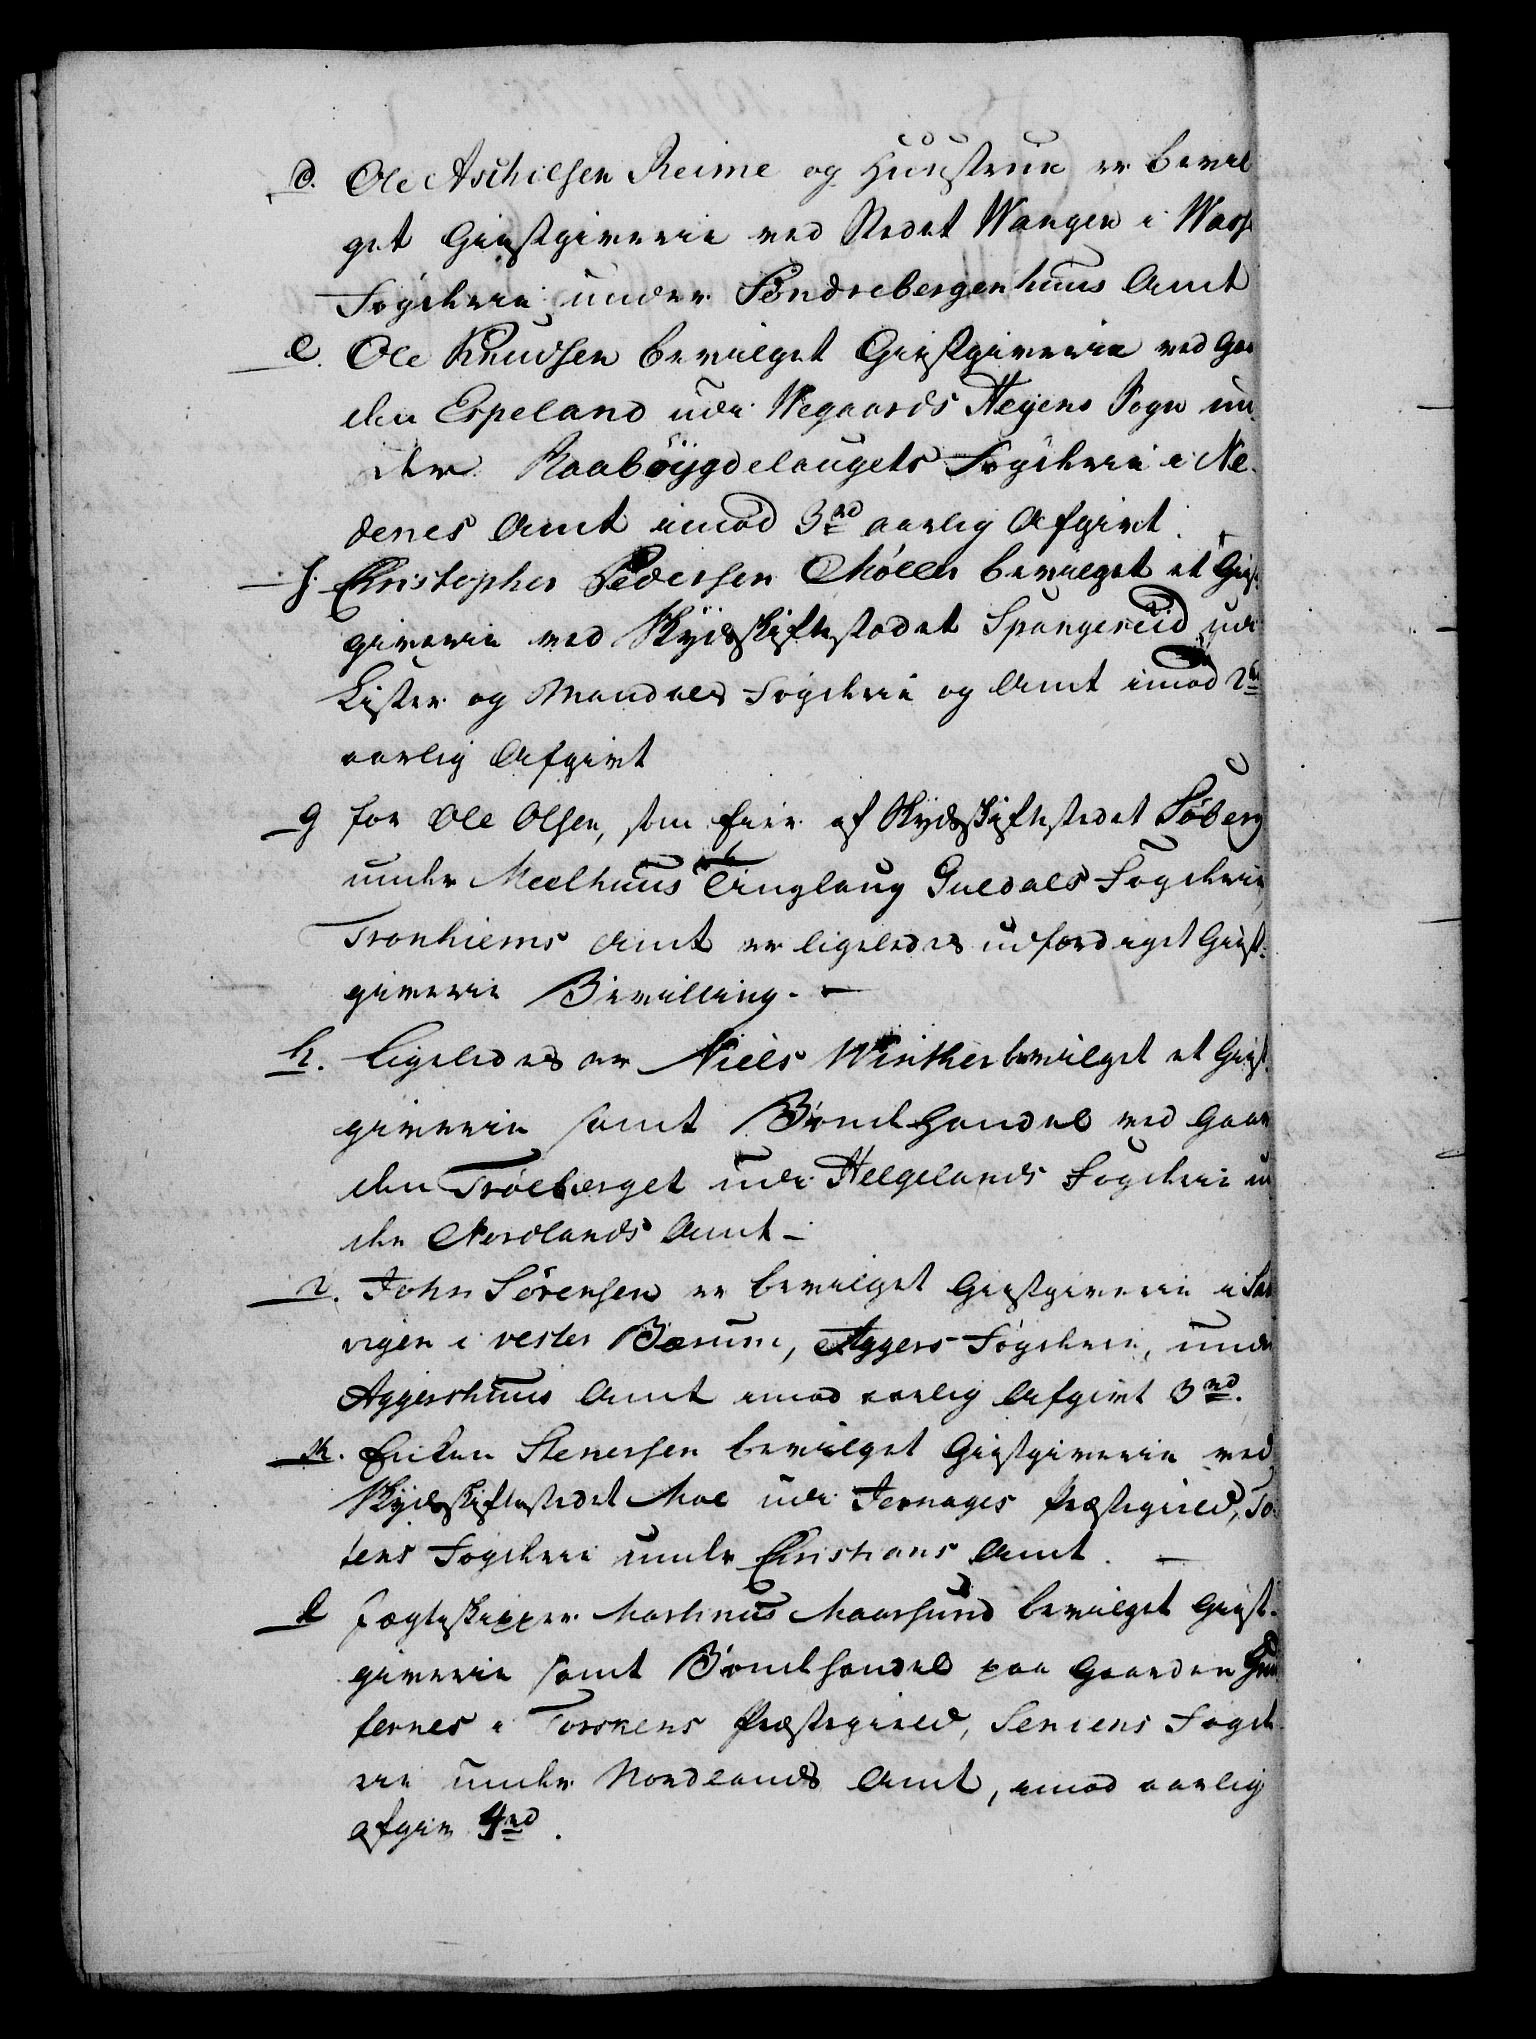 d. Ole Aschilsen Reime og Huustrue er bevil
get Giestgiverie ved Stedet Wangen i Woss
Fogderie under Söndrebergenhuus Amt
e. Ole Knudsen bevilget Giestgiverie ved Gaar
den Espeland udi Wegaards Heyens Sogn un
der Raabÿgdelaugets Fogderie i Ne-
denes Amt imod 3 rd aarlig Afgivt.
f. Christopher Pedersen Möller bevilget et Giest
giverie ved Skydsskiftestedet Spangereid udi
Lister og Mandals Fogderie og Amt imod 2 rd
aarlig Afgivt
g for Ole Olsen, som Eier af Skydsskiftestedet Söberg
under Meelhuus Tinglaug Guldals Fogderie,
Tronhiems Amt er ligeledes udfærdiget Giest-
giverie Bevilling. —
h. Ligeledes er Niels Winther bevilget et Giest
giverie samt Bondehandel ved Gaar
den Tröeberget udi Helgelands Fogderie un
der Nordlands Amt —
i. John Sörensen er bevilget Giestgiverie i San
vigen i vester Bærum, Aggers Fogderie, under
Aggershuus Amt imod aarlig Afgivt 3 rd.
k. Enken Stenersen bevilget Giestgiverie ved
Skydsskiftestedet Moe udi Jevnages Præstegield, To-
tens Fogderie under Christians Amt. —
l Fægteskipper Martinus Maarsund bevilget Giest-
giverie samt Bondehandel paa Gaarden
fernes i Torskens Præstegield, Seniens Fogde
rie under Nordlands Amt, imod aarlig
afgiv. 4 rd.